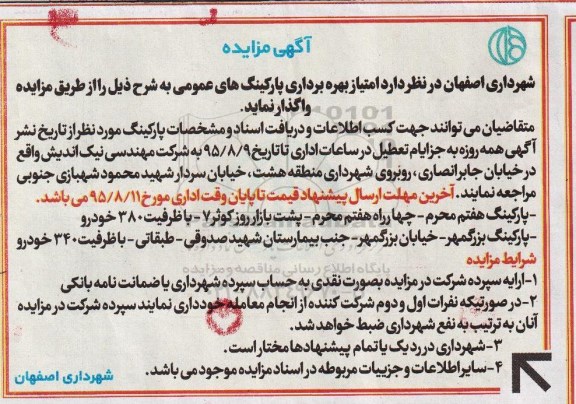 آگهی مزایده
شهرداری اصفهان در نظر دارد امتیاز بهره برداری پارکینگ های عمومی به شرح ذیل را از طریق مزایده
واگذار نماید.
متقاضیان می توانند جهت کسب اطلاعات و دریافت اسناد و مشخصات پارکینگ مورد نظر از تاریخ نشر
آگهی همه روزه به جز ایام تعطیل در ساعات اداری تا تاریخ ۹۵/۸/۹ به شرکت مهندسی نیک اندیش واقع
در خیابان جابر انصاری ، روبروی شهرداری منطقه هشت ، خیابان سردار شهید محمود شهبازی جنوبی
مراجعه نمایند. آخرین مهلت ارسال پیشنهاد قیمت تا پایان وقت اداری مورخ ۹۵/۸/۱۱ می باشد.
-پارکینگ هفتم محرم - چهارراه هفتم محرم - پشت بازار روز کوثر ۷ - با ظرفیت ۳۸۰ خودرو
-پارکینگ بزرگمهر- خیابان بزرگمهر- جنب بیمارستان شهید صدوقی - طبقاتی - با ظرفیت ۳۴۰ خودرو
شرایط مزایده
۱-ارایه سپرده شرکت در مزایده بصورت نقدی به حساب سپرده شهرداری یا ضمانت نامه بانکی
۲-در صورتیکه نفرات اول و دوم شرکت کننده از انجام معامله خودداری نمایند سپرده شرکت در مزایده
آنان به ترتیب به نفع شهرداری ضبط خواهد شد.
۳-شهرداری در رد یک یا تمام پیشنهادها مختار است.
۴-سایر اطلاعات و جزییات مربوطه در اسناد مزایده موجود می باشد.
شهرداری اصفهان
پایگاه اطلاع رسانی مناقصه و مزایده